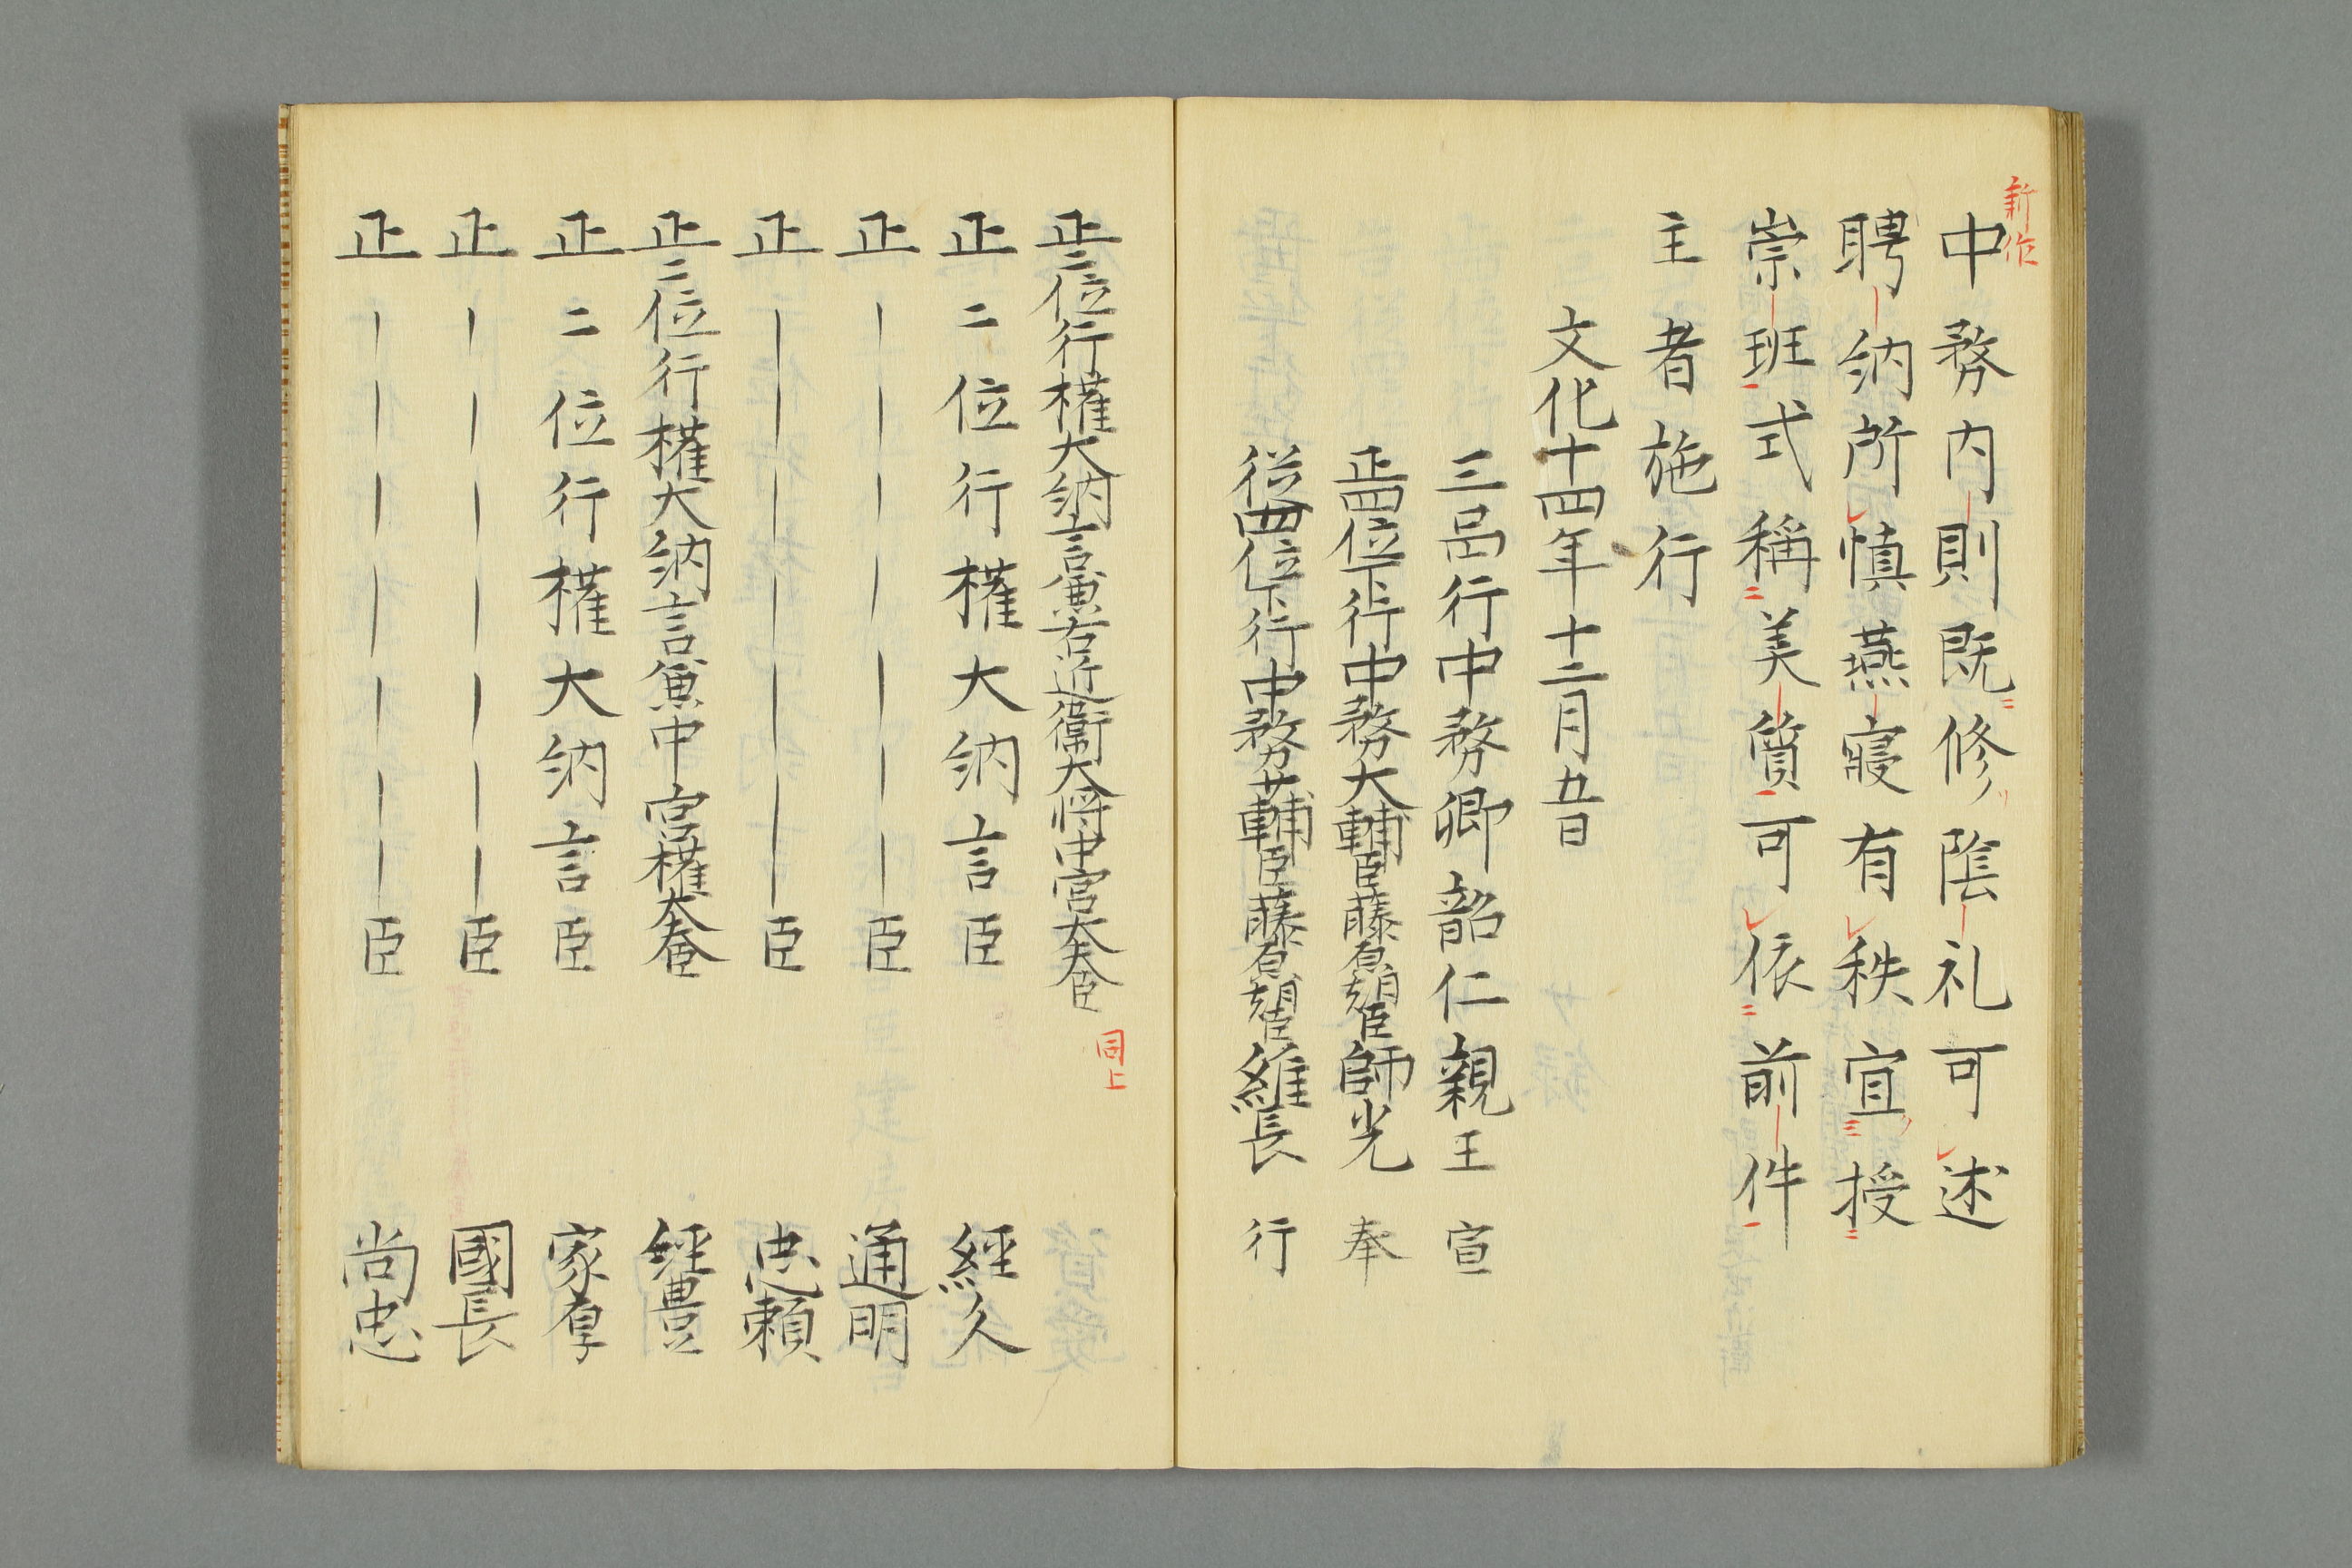 新作
中務内則既修陰礼可述
聘納所慎燕寝有秩宜授
崇班式稱美質可依前件
主者施行
文化十四年十二月五日
三品行中務卿韶仁親王宣
正四位下行中務大輔臣藤原朝臣師光奉
従四位下行中務少輔臣藤原朝臣維長行
正二位行權大納言兼右近衛大将中宮大夫臣
同上
正二位行權大納言臣 經久
正 ｜｜｜｜｜｜臣 通明
正 ｜｜｜｜｜｜臣 忠頼
正二位行權大納言兼中宮權大夫臣 經豊
正二位行權大納言臣 家厚
正 ｜｜｜｜｜｜臣 國長
正 ｜｜｜｜｜｜臣 尚忠